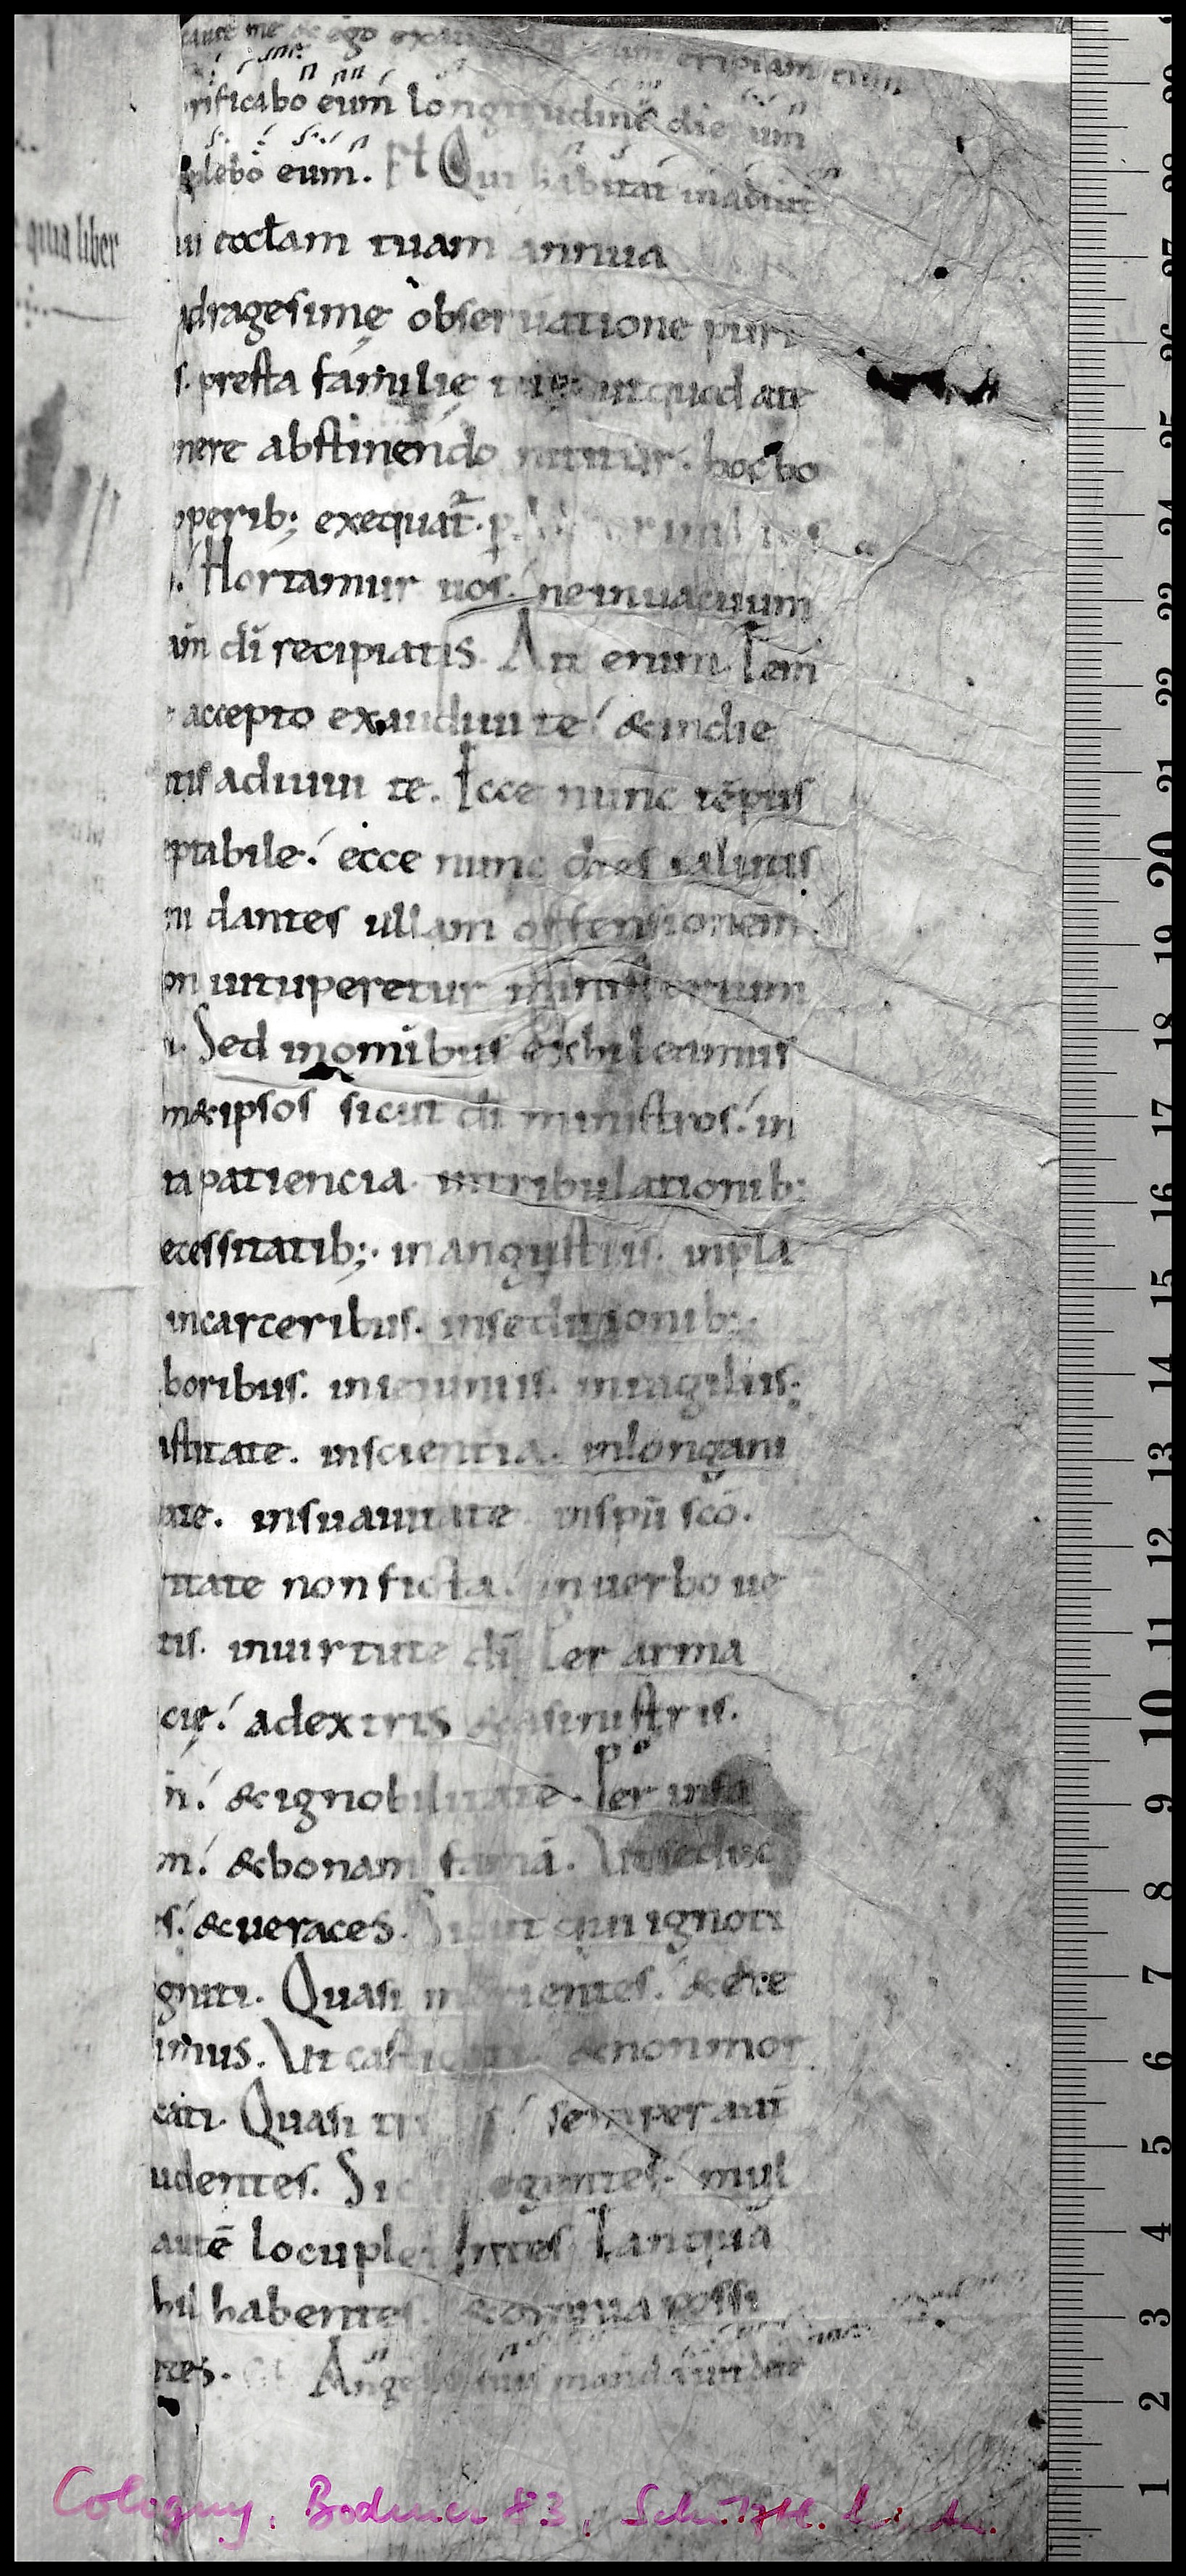 me & ego eripiam eum
rificabo eum longitudinē die um
plebo eum. Ps Qui habitat in adiut
ui eccłam tuam annua
adragesimę obseruatione puri
s. presta familię tuę ut quod a te
nere abstinendo nititur. hoc bo
operib; exequat̄. p.
Hortamur uos. ne in uacuum
am dī recipiatis. Ait enim. Tem
accepto exaudiui te. & in die
utis adiuui te. Ecce nunc tēpus
eptabile. ecce nunc dies salutis
m dantes ullam offensionem
on uituperetur ministerium
Sed in omnibus exhibeamus
m&ipsos sicut dī ministros. in
ta patiencia in tribulationib:
ecessitatib;. in angustiis. in pla
in carceribus. in seditionib:
boribus. in ieiuniis. in uigiliis.
astitate. in scientia. in longani
ate. in suauitate in spū scō.
ritate non ficta. in uerbo ue
tis. in uirtute dī Per arma
cię. a dextris & a sinistris.
m. & ignobilitatē. Per infa
m. & bonam famā. Ut seduc
s. & ueraces. Sicut qui ignoti
gniti. Quasi morientes. & ecce
imus. Ut castigati & non mor
cati. Quasi tristes semper aut
udentes. Sicut egentes. mul
autē locupletantes Tanquā
hil habentes. & omnia possi
ntes. Angelis suis mandauit de te
quia liber
Cologny, Bodmer 83,
29
28
27
26
25
24
23
22
21
20
19
18
17
16
15
14
13
12
11
10
9
8
7
6
5
4
3
2
1